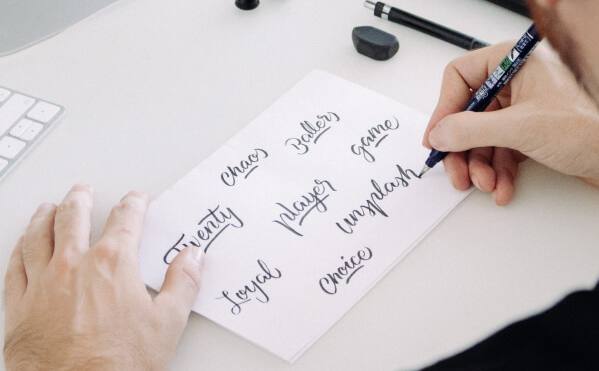 Chaos
Ballers
game
Twenty
player
unsplash
Loyal
choice